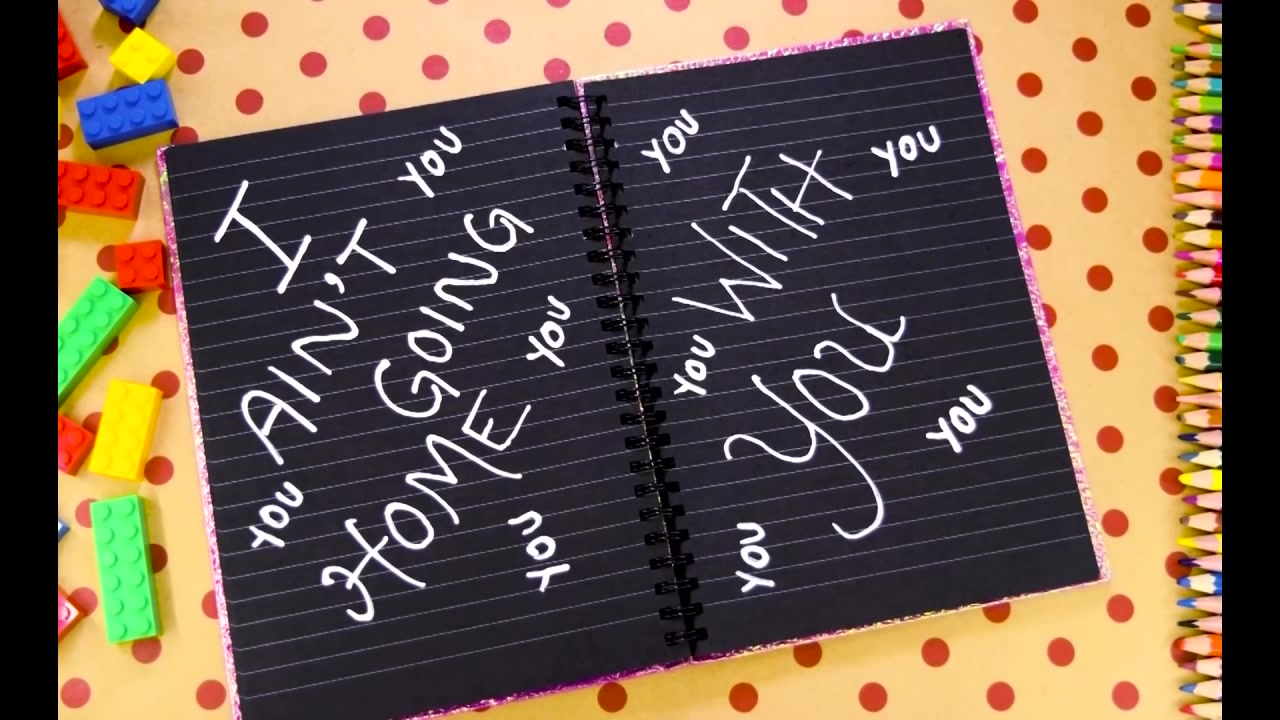 I
AIN'T
GOING
HOME
YOU
YOU
YOU
YOU
WITH
YOU
YOU
YOU
YOU
YOU
YOU